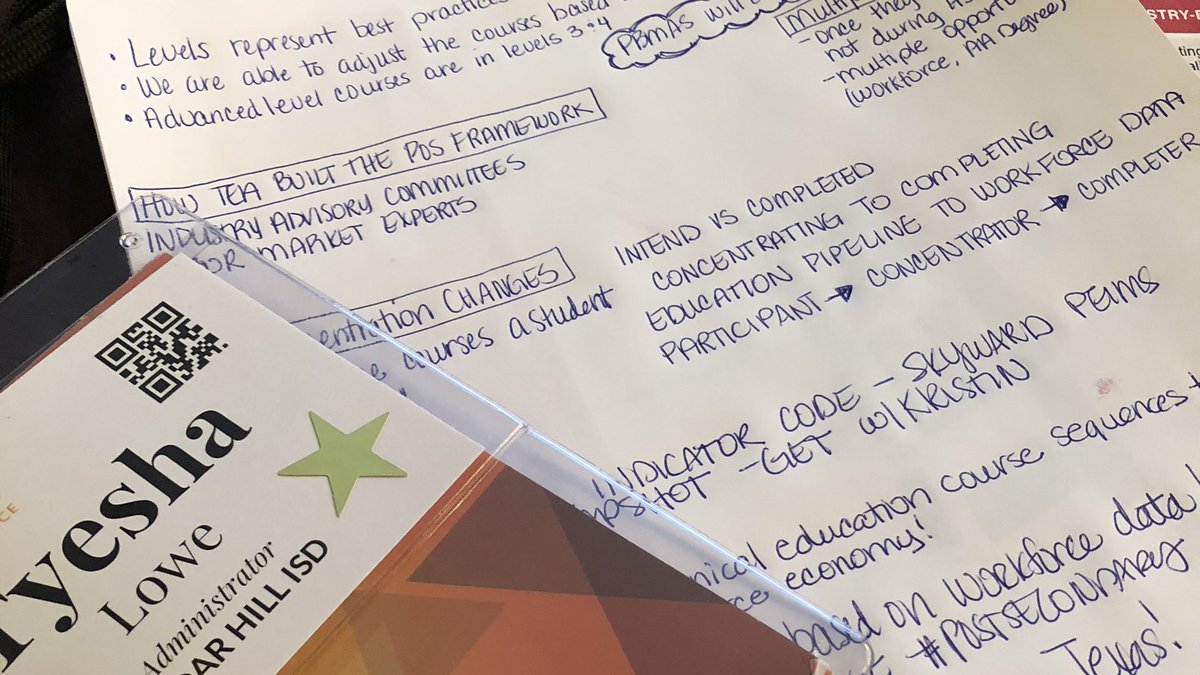 • Levels represent best practices
• We are able to adjust the courses based
• Advanced level courses are in levels 3 & 4
PBMAS will
- once they
not during
- multiple
(workforce, AA Degree)
HOW TEA BUILT THE POS FRAMEWORK
INDUSTRY ADVISORY COMMITTEES
MARKET EXPERTS
CHANGES
courses a student
INTEND VS COMPLETED
CONCENTRATING TO COMPLETING
EDUCATION PIPELINE TO WORKFORCE DATA
PARTICIPANT → CONCENTRATOR → COMPLETER
INDICATOR CODE - SKYWARD PEIMS
- GET W/ KRISTIN
education course sequences
economy!
based on workforce data
#POSTSECONDARY
Texas!
STRY-
Tyesha
LOWE
Administrator
HILL ISD